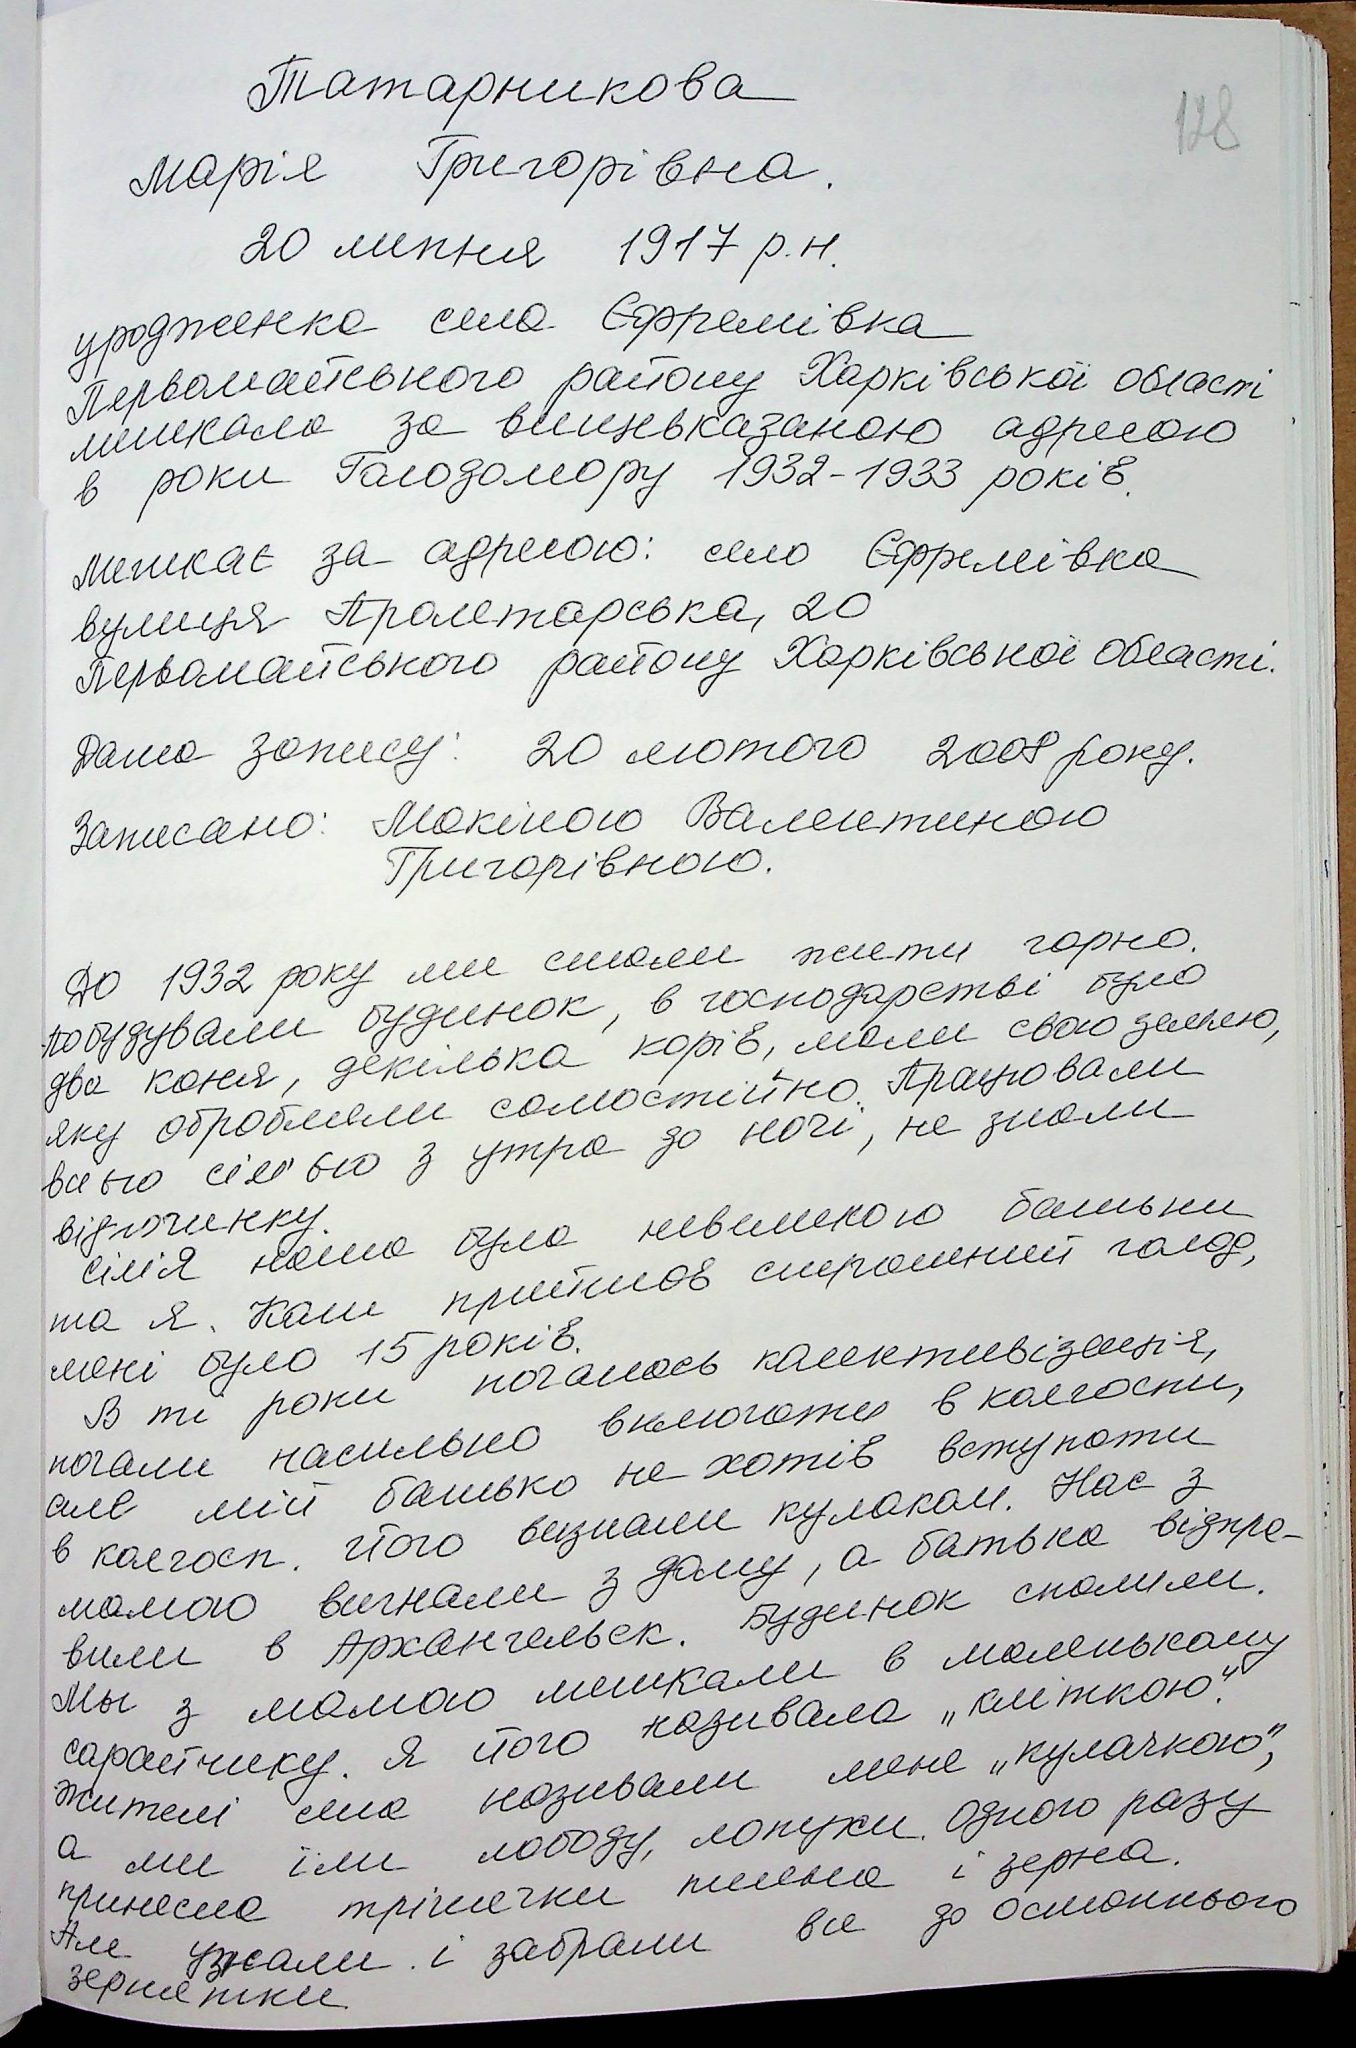 128
Татарникова
Марія Григорівна.
20 липня 1917 р.н.
уродженка села Єфремівка
Первомайського району Харківської області
мешкала за вищевказаною адресою
в роки Голодомору 1932-1933 років.
Мешкає за адресою: село Єфремівка
вулиця Пролетарська, 20
Первомайського району Харківської області.
Дата запису: 20 лютого 2008 року.
Записано: Мокіною Валентиною
Григорівною.
До 1932 року ми стали жити гарно.
побудували будинок, в господарстві було
два коня, декілька корів, мали свою землю,
яку обробляли самостійно. Працювали
всією сім'ью з утра до ночі, не знали
відпочинку.
Сім'я наша була невеликою батьки
та я. Коли прийшов страшний голод,
мені було 15 років.
В ті роки почалась колективізація,
почали насильно включати в колгоспи,
але мій батько не хотів вступати
в колгосп. Його визнали кулаком. Нас з
мамою вигнали з дому, а батька відпра-
вили в Архангельск. Будинок спалили.
Мы з мамою мешкали в маленькому
сарайчику. Я його називала „кліткою".
Жителі села називали мене „кулачкою",
а ми їли лободу, лопухи. Одного разу
принесла трішечки пшена і зерна.
Але узнали і забрали все до останнього
зернятки.